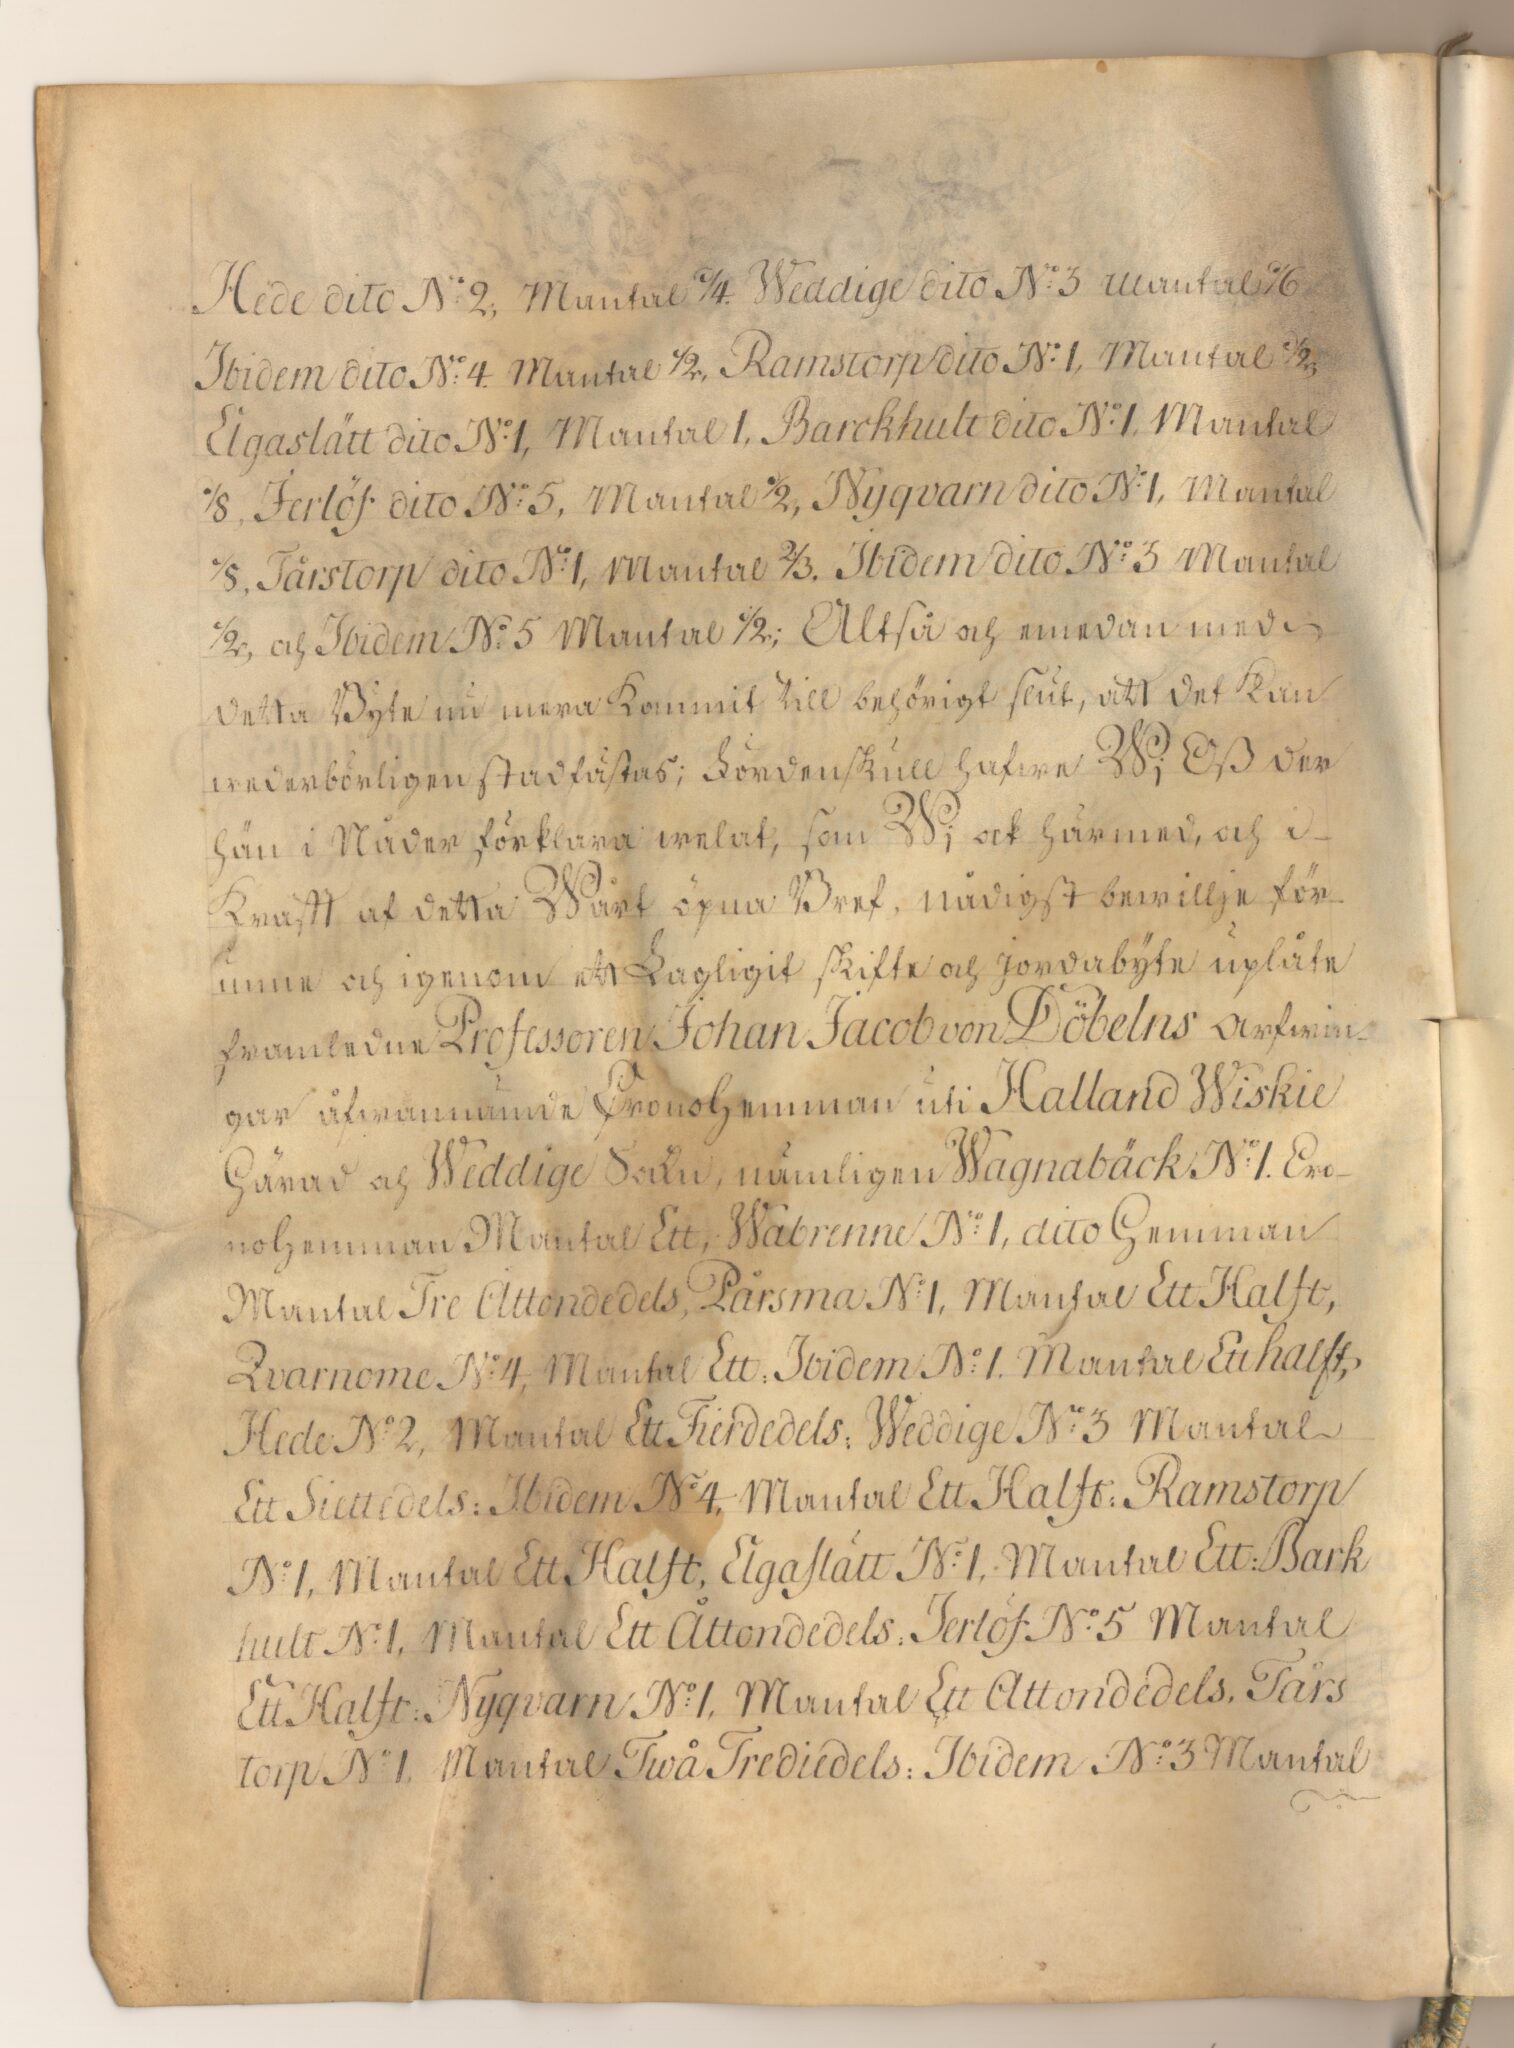 Hede dito N:o 2, Mantal 1/4. Weddige dito N:o 3 mantal 1/6
Ibidem dito N:o 4. Mantal 1/2, Ramstorp dito N:o 1, Mantal 1/2,
Elgaslätt dito N:o 1, Mantal 1, Barckhult dito N:o 1, Mantal
1/8, Jerlöf dito N:o 5, Mantal 1/2, Nyqvarn dito N:o 1, Mantal
1/8, Tårstorp dito N:o 1, Mantal 2/3. Ibidem dito N:o 3 Mantal
1/2, och Ibidem N:o 5 Mantal 1/2; Altså och emedan med
detta Byte nu mera kommit till behörigt slut, att det kan
wederbörligen stadfästas; Fördenskull hafwe Wj Oß der
hän i Nåder förklara welat, som Wj ock härmed, och i
Krafft af detta Wårt öpna Bref, nådigst bewillje för-
unne och igenom ett Lagligit skifte och jordabyte uplåte
framledne Professoren Johan Jacob von Döbelns arfwin-
gar åfwannämde Cronohemman uti Halland Wiskie
Härad och Weddige Sockn, nämligen Wagnabäck N:o 1. Cro-
nohemman Mantal Ett, Wabrenne N:o 1, dito Hemman
Mantal Tre Åttondedels, Pårsma N:o 1, Mantal Ett Halft,
Qvarnome N:o 4, Mantal Ett: Ibidem N:o 1. Mantal Ett halft,
Hede N:o 2, Mantal Ett Fierdedels: Weddige N:o 3 Mantal
Ett Siettedels: Ibidem N:o 4, Mantal Ett Halft: Ramstorp
N:o 1, Mantal Ett Halft, Elgaslätt N:o 1, Mantal Ett: Bark
hult N:o 1, Mantal Ett Åttondedels: Jerlöf N:o 5 Mantal
Ett Halft: Nyqvarn N:o 1, Mantal Ett Åttondedels, Tårs
torp N:o 1, Mantal Twå Trediedels: Ibidem N:o 3 Mantal